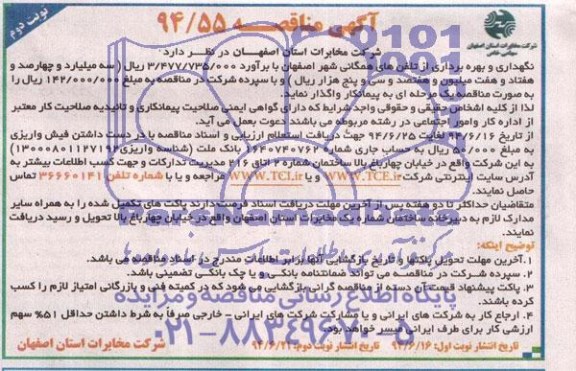 نوبت دوم
آگهی مناقصه ۹۴/۵۵
شرکت مخابرات استان اصفهان
سهامی خاص
شرکت مخابرات استان اصفهان در نظر دارد:
نگهداری و بهره برداری از تلفن های همگانی شهر اصفهان با برآورد ۳/۴۷۷/۷۳۵/۰۰۰ ریال ( سه میلیارد و چهارصد و
هفتاد و هفت میلیون و هفتصد و سی و پنج هزار ریال ) و با سپرده شرکت در مناقصه به مبلغ ۱۴۲/۰۰۰/۰۰۰ ریال را
به صورت مناقصه یک مرحله ای به پیمانکار واگذار نماید.
لذا از کلیه اشخاص حقیقی و حقوقی واجد شرایط که دارای گواهی ایمنی صلاحیت پیمانکاری و تائیدیه صلاحیت کار معتبر
از اداره کار و امور اجتماعی در رشته مربوطه می باشند دعوت بعمل می آید.
از تاریخ ۹۴/۶/۱۶ لغایت ۹۴/۶/۲۵ جهت دریافت استعلام ارزیابی و اسناد مناقصه با در دست داشتن فیش واریزی
به مبلغ ۵۰۰/۰۰۰ ریال به حساب جاری شماره بانک ملت (شناسه واریزی
به این شرکت واقع در خیابان چهارباغ بالا ساختمان شماره ۲ اتاق ۲۱۶ مدیریت تدارکات و جهت کسب اطلاعات بیشتر به
آدرس سایت اینترنتی شرکت WWW.TCE.ir و یا WWW.TCI.ir مراجعه و یا با شماره تلفن ۳۶۶۶۰۱۴۱ تماس
حاصل نمایند.
متقاضیان حداکثر تا دو هفته پس از آخرین مهلت دریافت اسناد فرصت دارند پاکت های تکمیل شده را به همراه سایر
مدارک لازم به دبیرخانه ساختمان شماره یک مخابرات استان اصفهان واقع در خیابان چهارباغ بالا تحویل و رسید دریافت
نمایند.
توضیح اینکه:
۱. آخرین مهلت تحویل پاکتها و تاریخ بازگشایی آنها برابر اطلاعات مندرج در اسناد مناقصه می باشد.
۲. سپرده شرکت در مناقصه می تواند ضمانتنامه بانکی و یا چک بانکی تضمینی باشد.
۳. پاکت پیشنهاد قیمت آن دسته از مناقصه گران بازگشایی می شود که در کمیته فنی و بازرگانی امتیاز لازم را کسب
کرده باشند.
۴. ارجاع کار به شرکت های ایرانی و یا مشارکت شرکت های ایرانی - خارجی صرفاً به شرط داشتن حداقل ۵۱% سهم
ارزشی کار برای طرف ایرانی میسر خواهد بود.
تاریخ انتشار نوبت اول: ۹۴/۶/۱۶ تاریخ انتشار نوبت دوم: ۹۴/۶/۲۱
شرکت مخابرات استان اصفهان
پایگاه اطلاع رسانی مناقصه و مزایده
۰۲۱-۸۸۳۴۹۶۷۰-۵